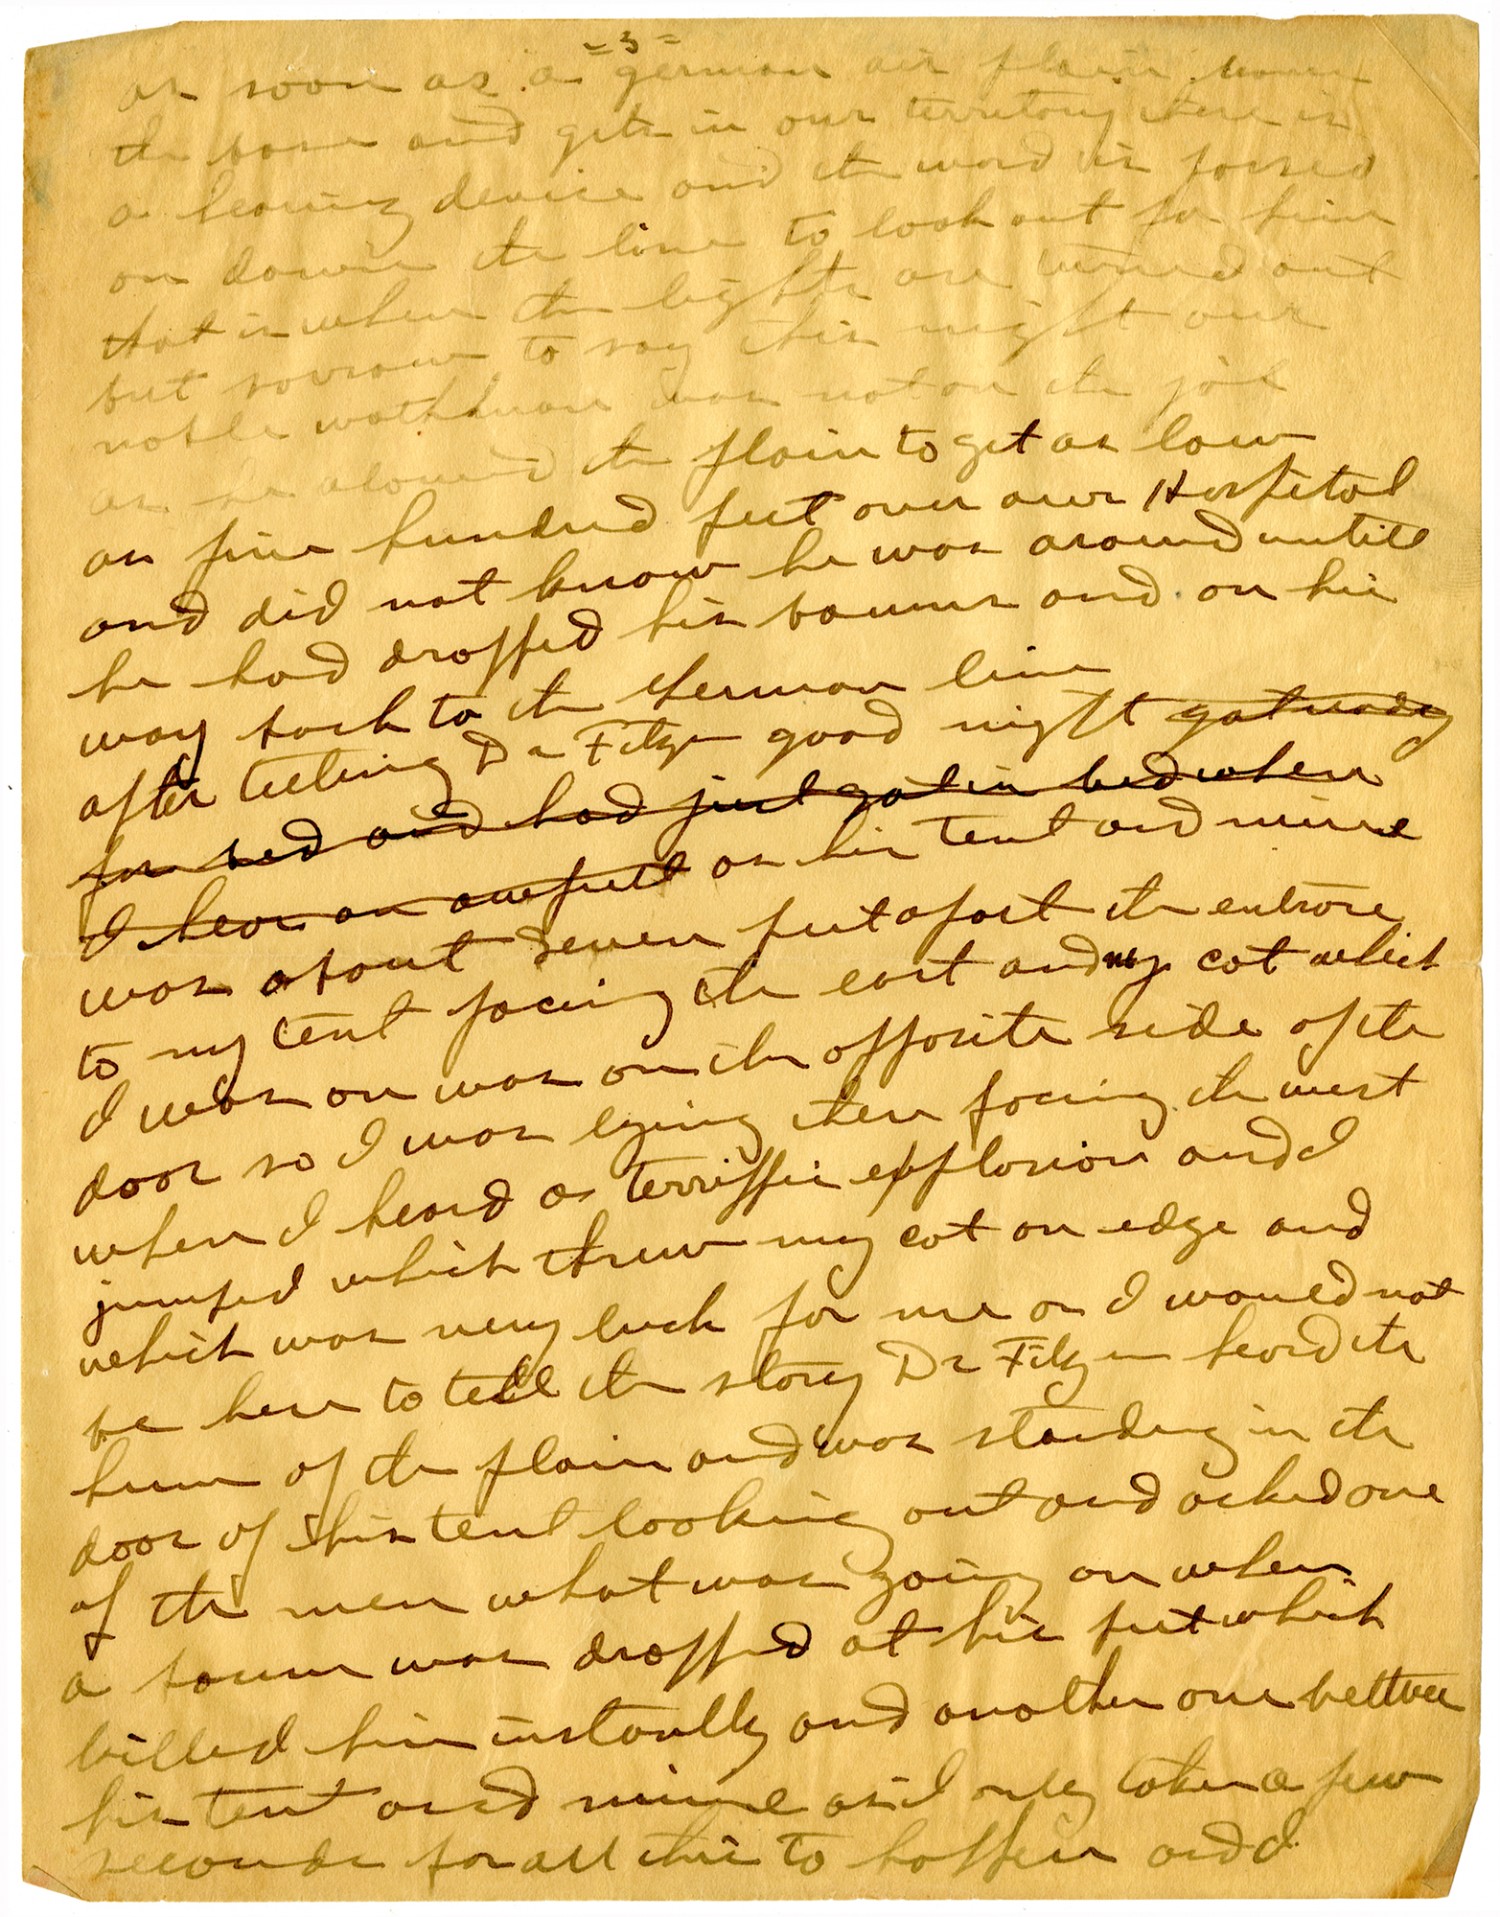 - 3 -
as soon as a german air plain
the and gets in our territory there is
a hearing device and the word is passed
on down the line to look out for him
that is when the lights are turned out
but sorrow to say this night our
noble watchman was not on the job
as he alowed the plain to get as low
as five hundred feet over our Hospital
and did not know he was around untill
he had dropped his boums and on his
way back to the German line
after telling Dr Fitz good night got ready
for bed and had just got in bed when
I hear an awfull as his tent and mine
was about seven feet apart the entrore
to my tent facing the east and my cot which
I was on was on the opposite side of the
door so I was lying there facing the west
when I heard a terriffic explosion and I
jumped which threw my cot on edge and
which was very luck for me or I would not
be here to tell the story Dr Fitz heard the
hum of the plain and was standing in the
door of his tent looking out and asked one
of the men what was going on when
a boum was dropped at his feet which
killed him instantly and another one
his tent and mine as it only taken a few
seconds for all this to happen and I